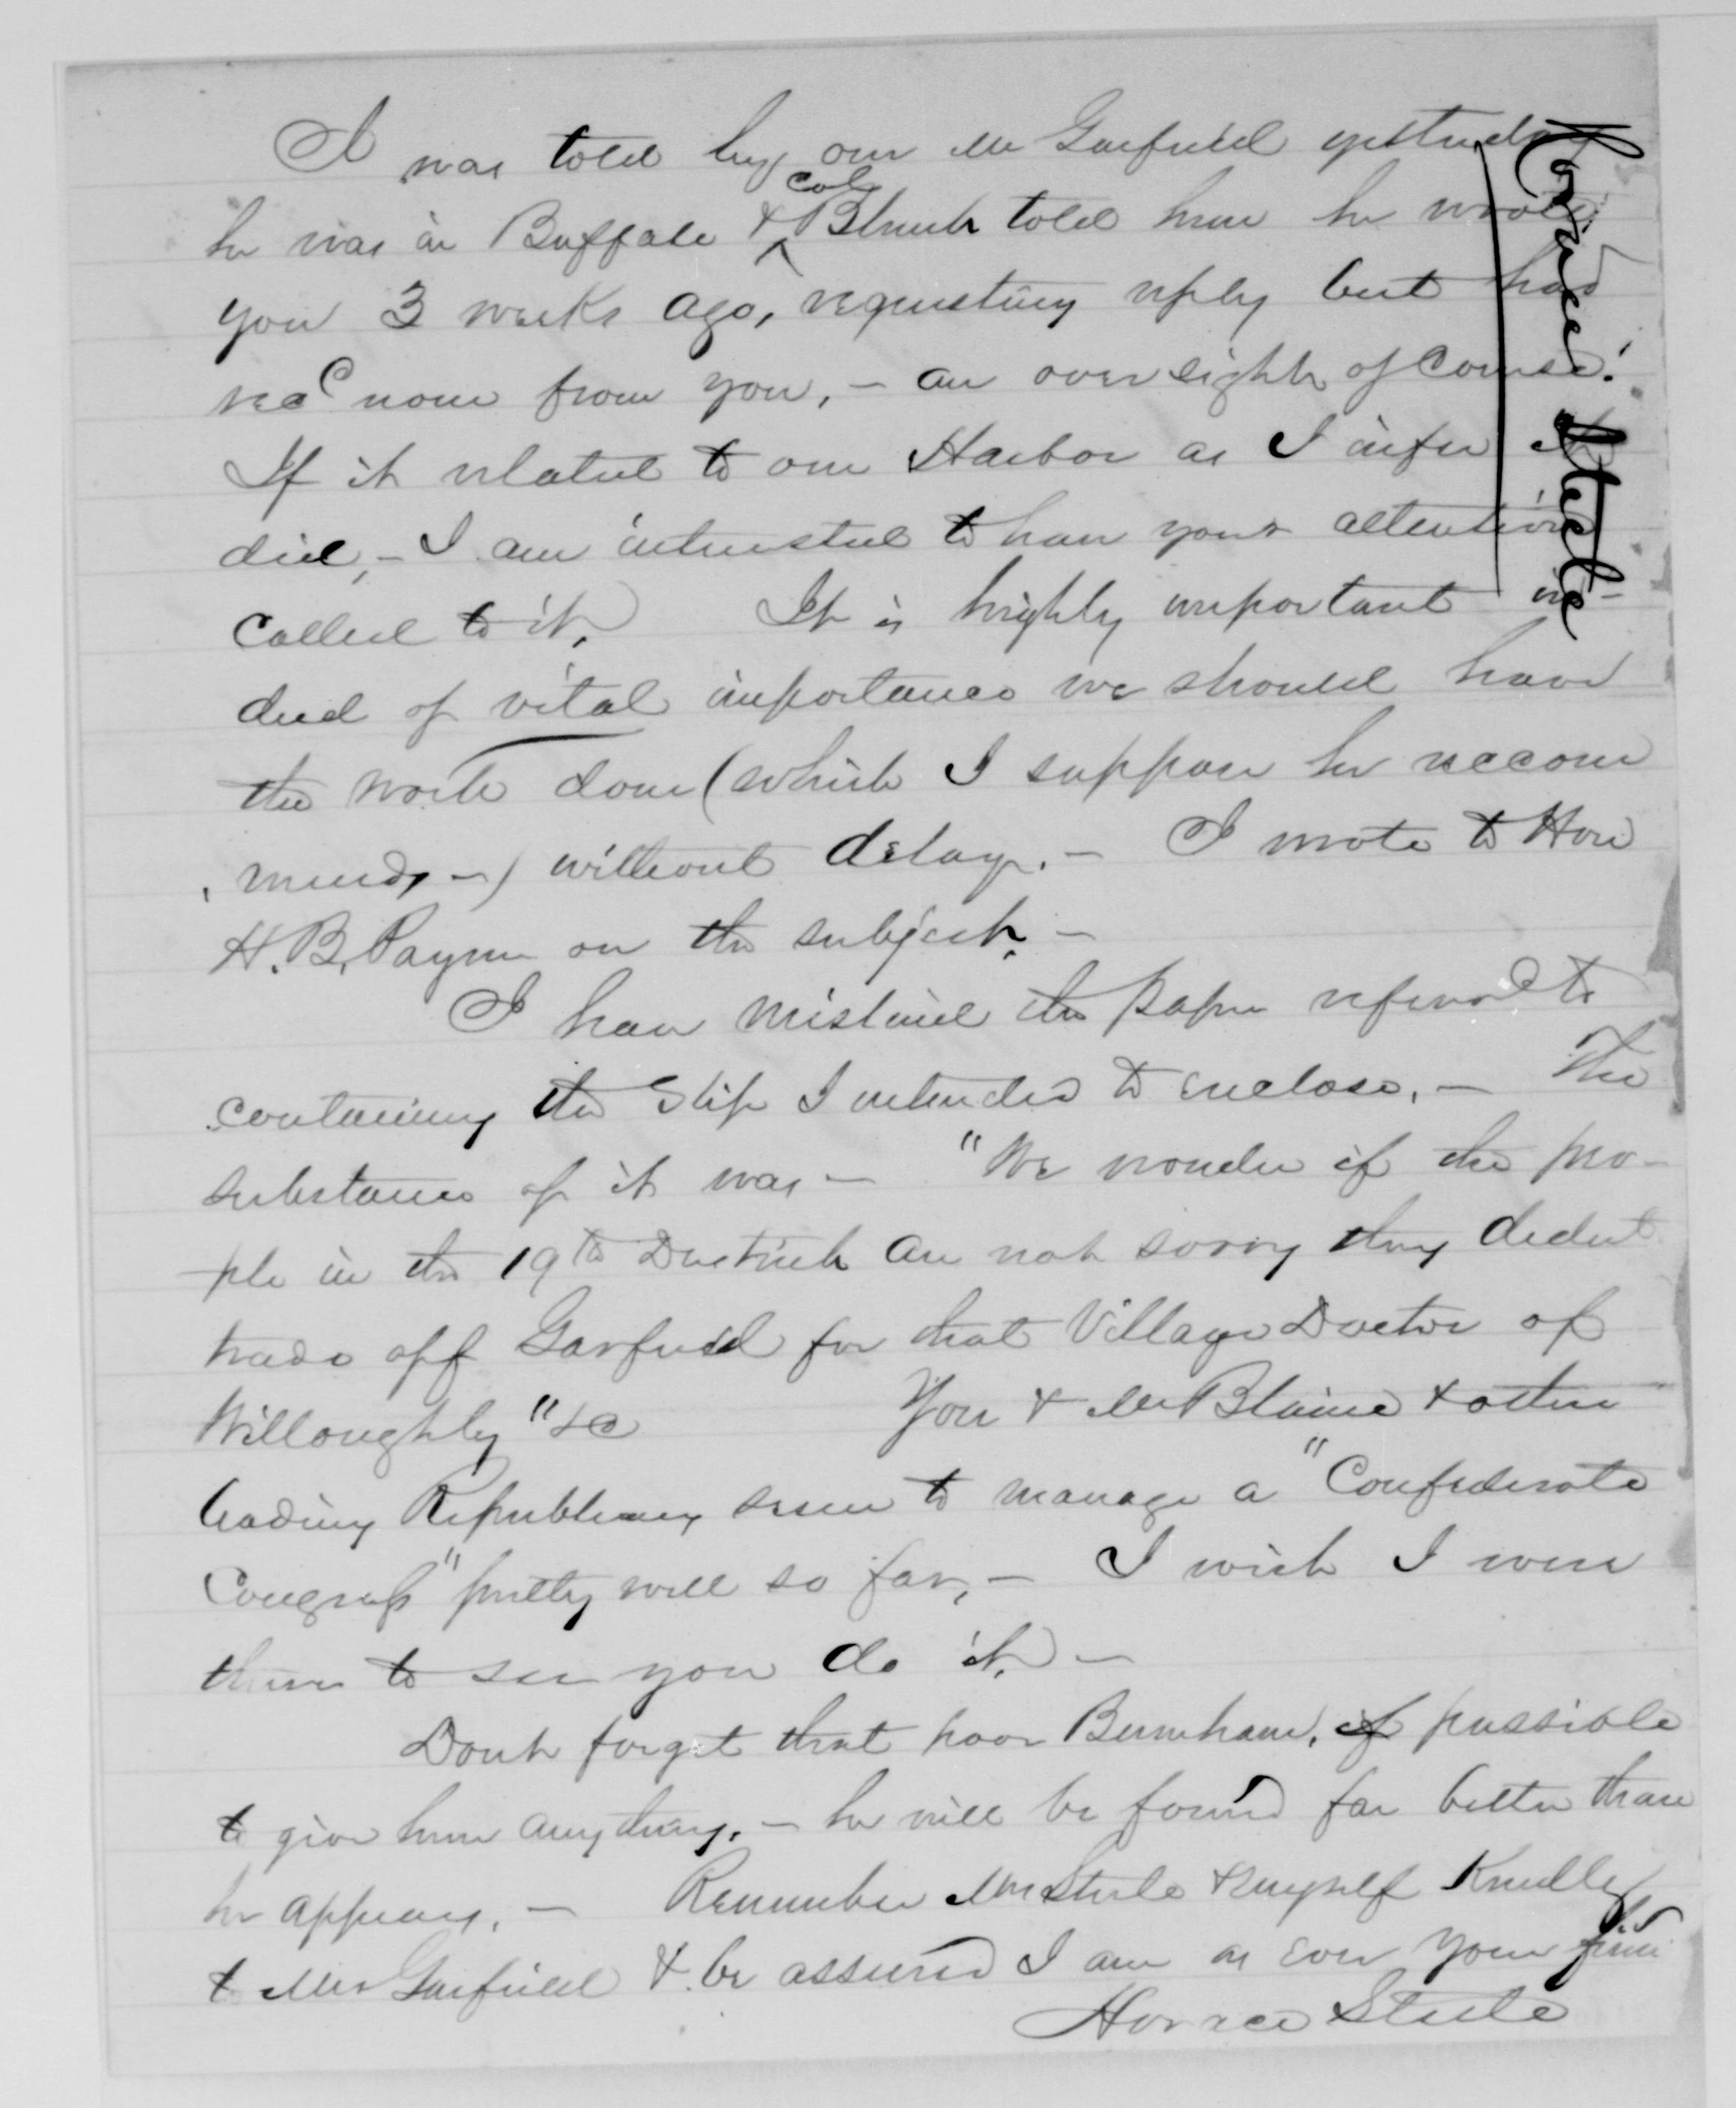 I was told by our Mr Garfield yesterday
he was in Buffalo & Col Blunt told him he wrote
you 3 weeks ago, requesting reply but had
recd none from you, – an oversight of course.
If it related to our Harbor as I infer it
did, – I am interested to have your attention
called to it. It is highly important in-
deed of vital importance we should have
the work done (which I suppose he recom
mends –) without delay. – I wrote to Hon
H. B. Payne on the subject. –
I have mislaid the paper referred to
containing the slip I intended to enclose. – The
substance of it was – "We wonder if the peo-
ple in the 19th District are not sorry they didnt
trade off Garfield for that Village Doctor of
Willoughby" &c You & Mr Blaine & other
leading Republicans seem to manage a "Confederate
Congress" pretty well so far, – I wish I were
there to see you do it. –
Dont forget that poor Burnham, if possible
to give him anything. – he will be found far better than
he appears. – Remember Mrs Steele & myself Kindly
to Mrs Garfield & be assured I am as ever your friend
Horace Steele
Horace Steele